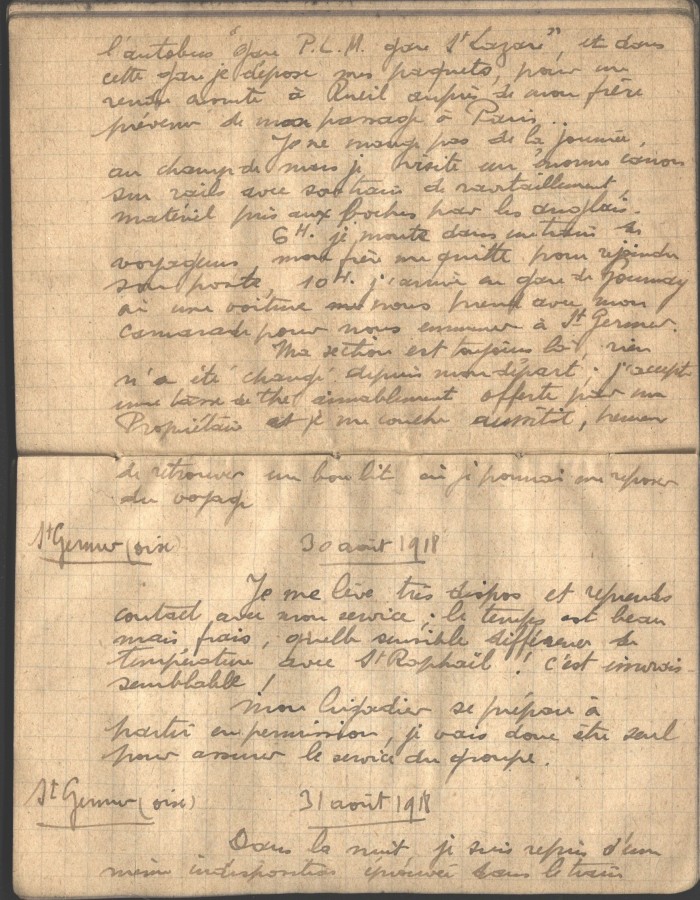 l'autobus "gare P.L.M. gare St Lazare", et dans
cette gare je dépose mes paquets, pour me
rendre ensuite à Rueil auprès de mon frère
prévenu de mon passage à Paris..
Je ne mange pas de la journée,
au champ de mars je visite un énorme canon
sur rails avec son train de ravitaillement,
matériel pris aux boches par les anglais.
6H. je monte dans un train de
voyageurs, mon frère me quitte pour rejoindre
son poste, 10H. j'arrive en gare de Gournay
où une voiture nous prend avec mon
camarade pour nous emmener à St Germer.
Ma section est toujours là, rien
n'a été changé depuis mon départ; j'accepte
une tasse de thé aimablement offerte par un
Propriétaire et je me couche aussitôt, heureux
de retrouver un bon lit où je pourrai me reposer
du voyage
St Germer (oise) 30 août 1918
Je me lève très dispos et reprends
contact avec mon service; le temps est beau
mais frais, quelle sensible différence de
température avec St Raphaël! c'est invrai-
semblable!
Mon brigadier se prépare à
partir en permission, je vais donc être seul
pour assurer le service du groupe.
St Germer (oise) 31 août 1918
Dans la nuit je suis repris d'une
même indisposition éprouvée dans le train